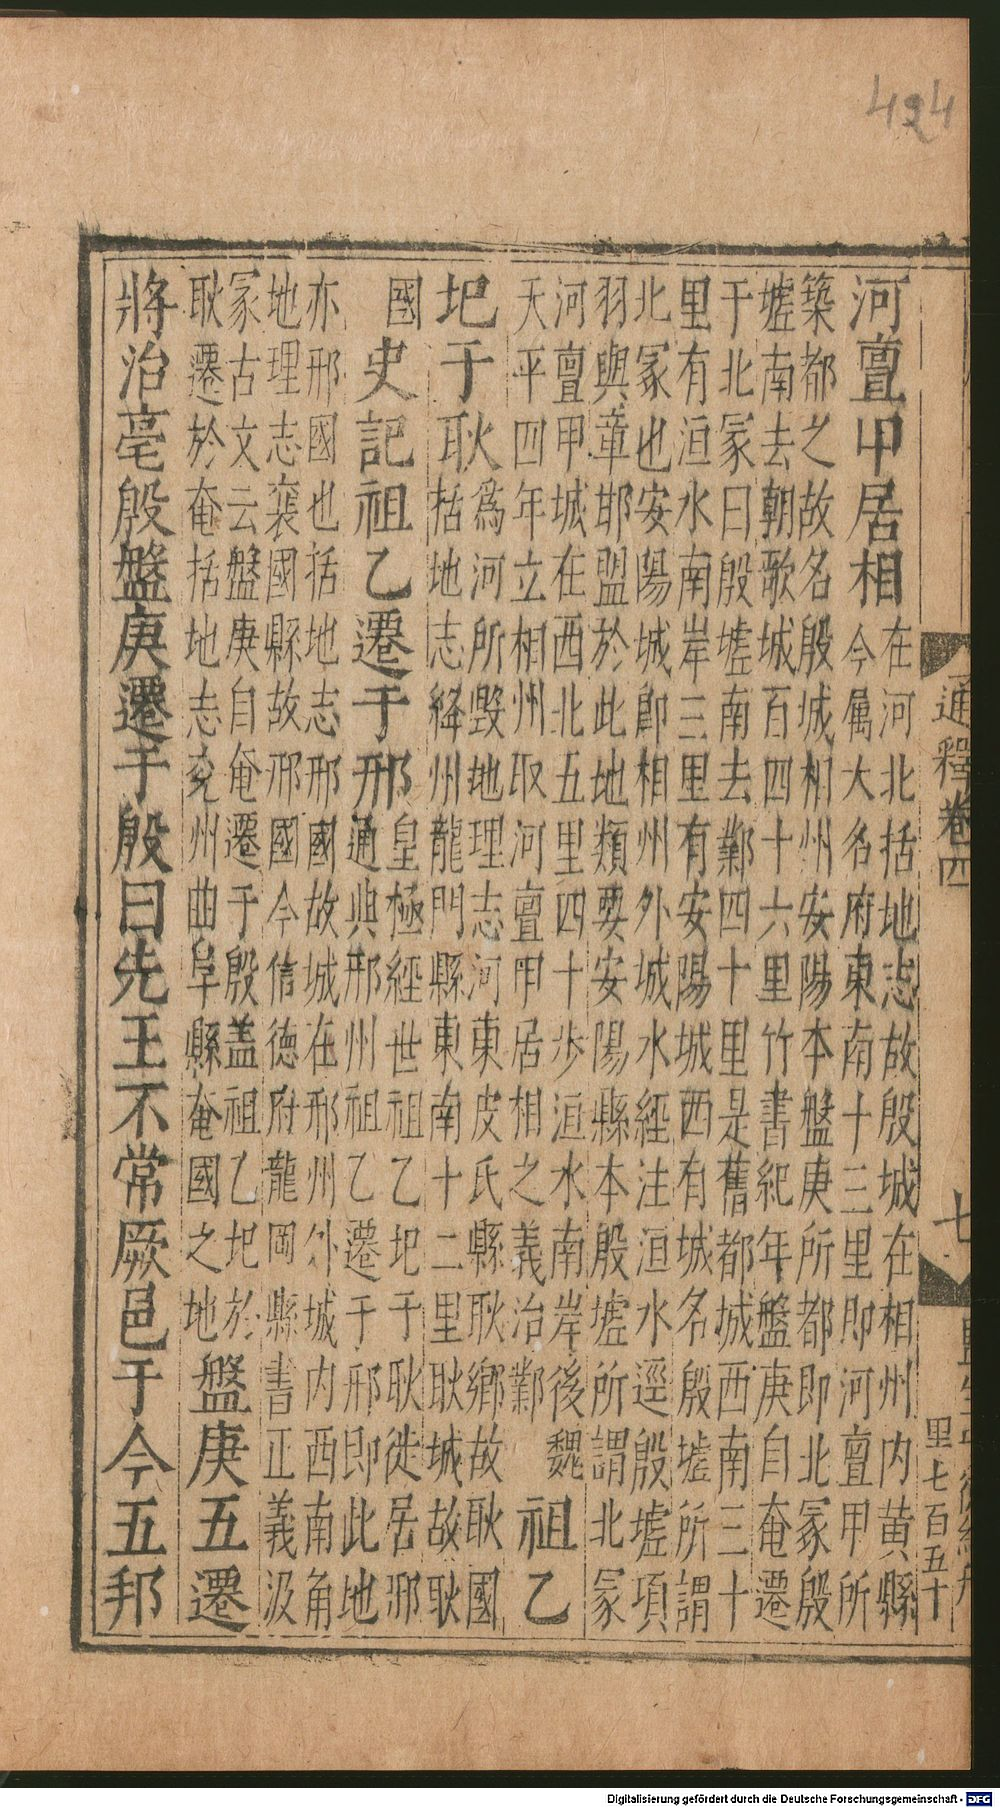 424
通釋卷四
七
里七百五十
河亶甲居相
在河北括地志故殷城在相州内黄縣
今属大名府東南十三里即河亶甲所
築都之故名殷城相州安陽本盤庚所都即北冢殷
墟南去朝歌城百四十六里竹書紀年盤庚自奄遷
于北冢曰殷墟南去鄴四十里是舊都城西南三十
里有洹水南岸三里有安陽城西有城名殷墟所謂
北冢也安陽城即相州外城水經注洹水逕殷墟項
羽與章邯盟於此地類要安陽縣本殷墟所謂北冢
河亶甲城在西北五里四十步洹水南岸後魏
天平四年立相州取河亶甲居相之義治鄴
祖乙
圯于耿
為河所毀地理志河東皮氏縣耿鄉故耿國
括地志絳州龍門縣東南十二里耿城故耿
國
史記祖乙遷于邢
皇極經世祖乙圯于耿徙居邢
通典邢州祖乙遷于邢即此地
亦邢國也括地志邢國故城在邢州外城内西南角
地理志襄國縣故邢國今信德府龍岡縣書正義汲
冢古文云盤庚自奄遷于殷盖祖乙圯於
耿遷於奄括地志兖州曲阜縣奄國之地
盤庚五遷
將治亳殷盤庚遷于殷曰先王不常厥邑于今五邦
Digitalisierung gefördert durch die Deutsche Forschungsgemeinschaft - DFG